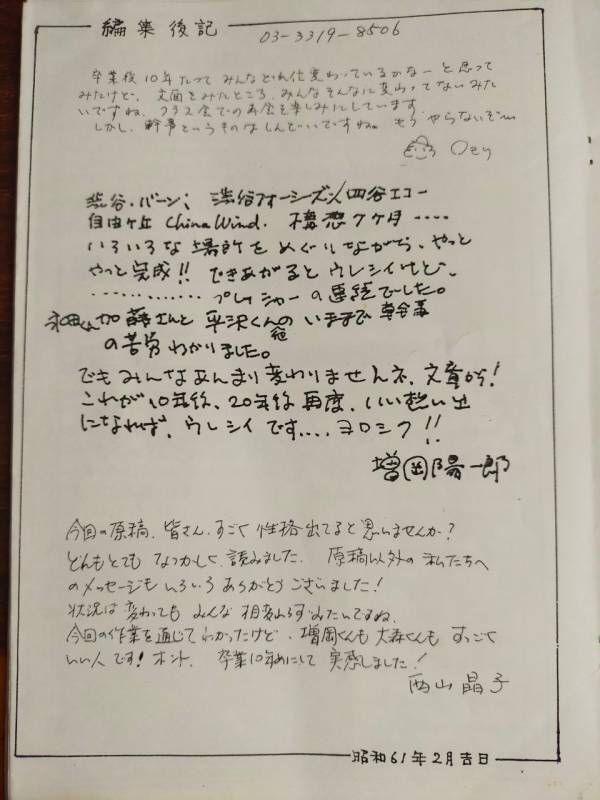 編集後記
03-3319-8506
卒業後10年たって みんなどれ位変わっているかなーと思って
みたけど、文面をみたところ、みんなそんなに変わってないみた
いですね、クラス会での再会を楽しみにしています
しかし、幹事というものはしんどいですね。もうやらないぞ〜
Ozy
渋谷・バーン、渋谷フォーシーズン/四谷エコー
自由ヶ丘 China Wind. 構想7ヶ月‥‥
いろいろな場所をめぐりながら、やっと
やっと完成!! できあがるとウレシイけど、
‥‥‥‥‥‥ プレッシャーの連続でした。
加藤さんと 平沢くん他の いままで 幹事
の苦労わかりました。
でもみんなあんまり変わりませんネ、文章から!
これが10年後、20年後再度、いい想い出
になれば、ウレシイです‥‥ヨロシク!!
増岡陽一郎
今回の原稿、皆さん、すごく性格出てると思いませんか?
どれもとても なつかしく 読みました. 原稿以外の私たちへ
のメッセージも いろいろ ありがとうございました!
状況は変わっても みんな 相変わらずみたいですね.
今回の作業を通じてわかったけど、増岡くんも大森くんも すっごく
いい人です! ホント. 卒業10年めにして 実感しました!
西山晶子
昭和61年2月吉日